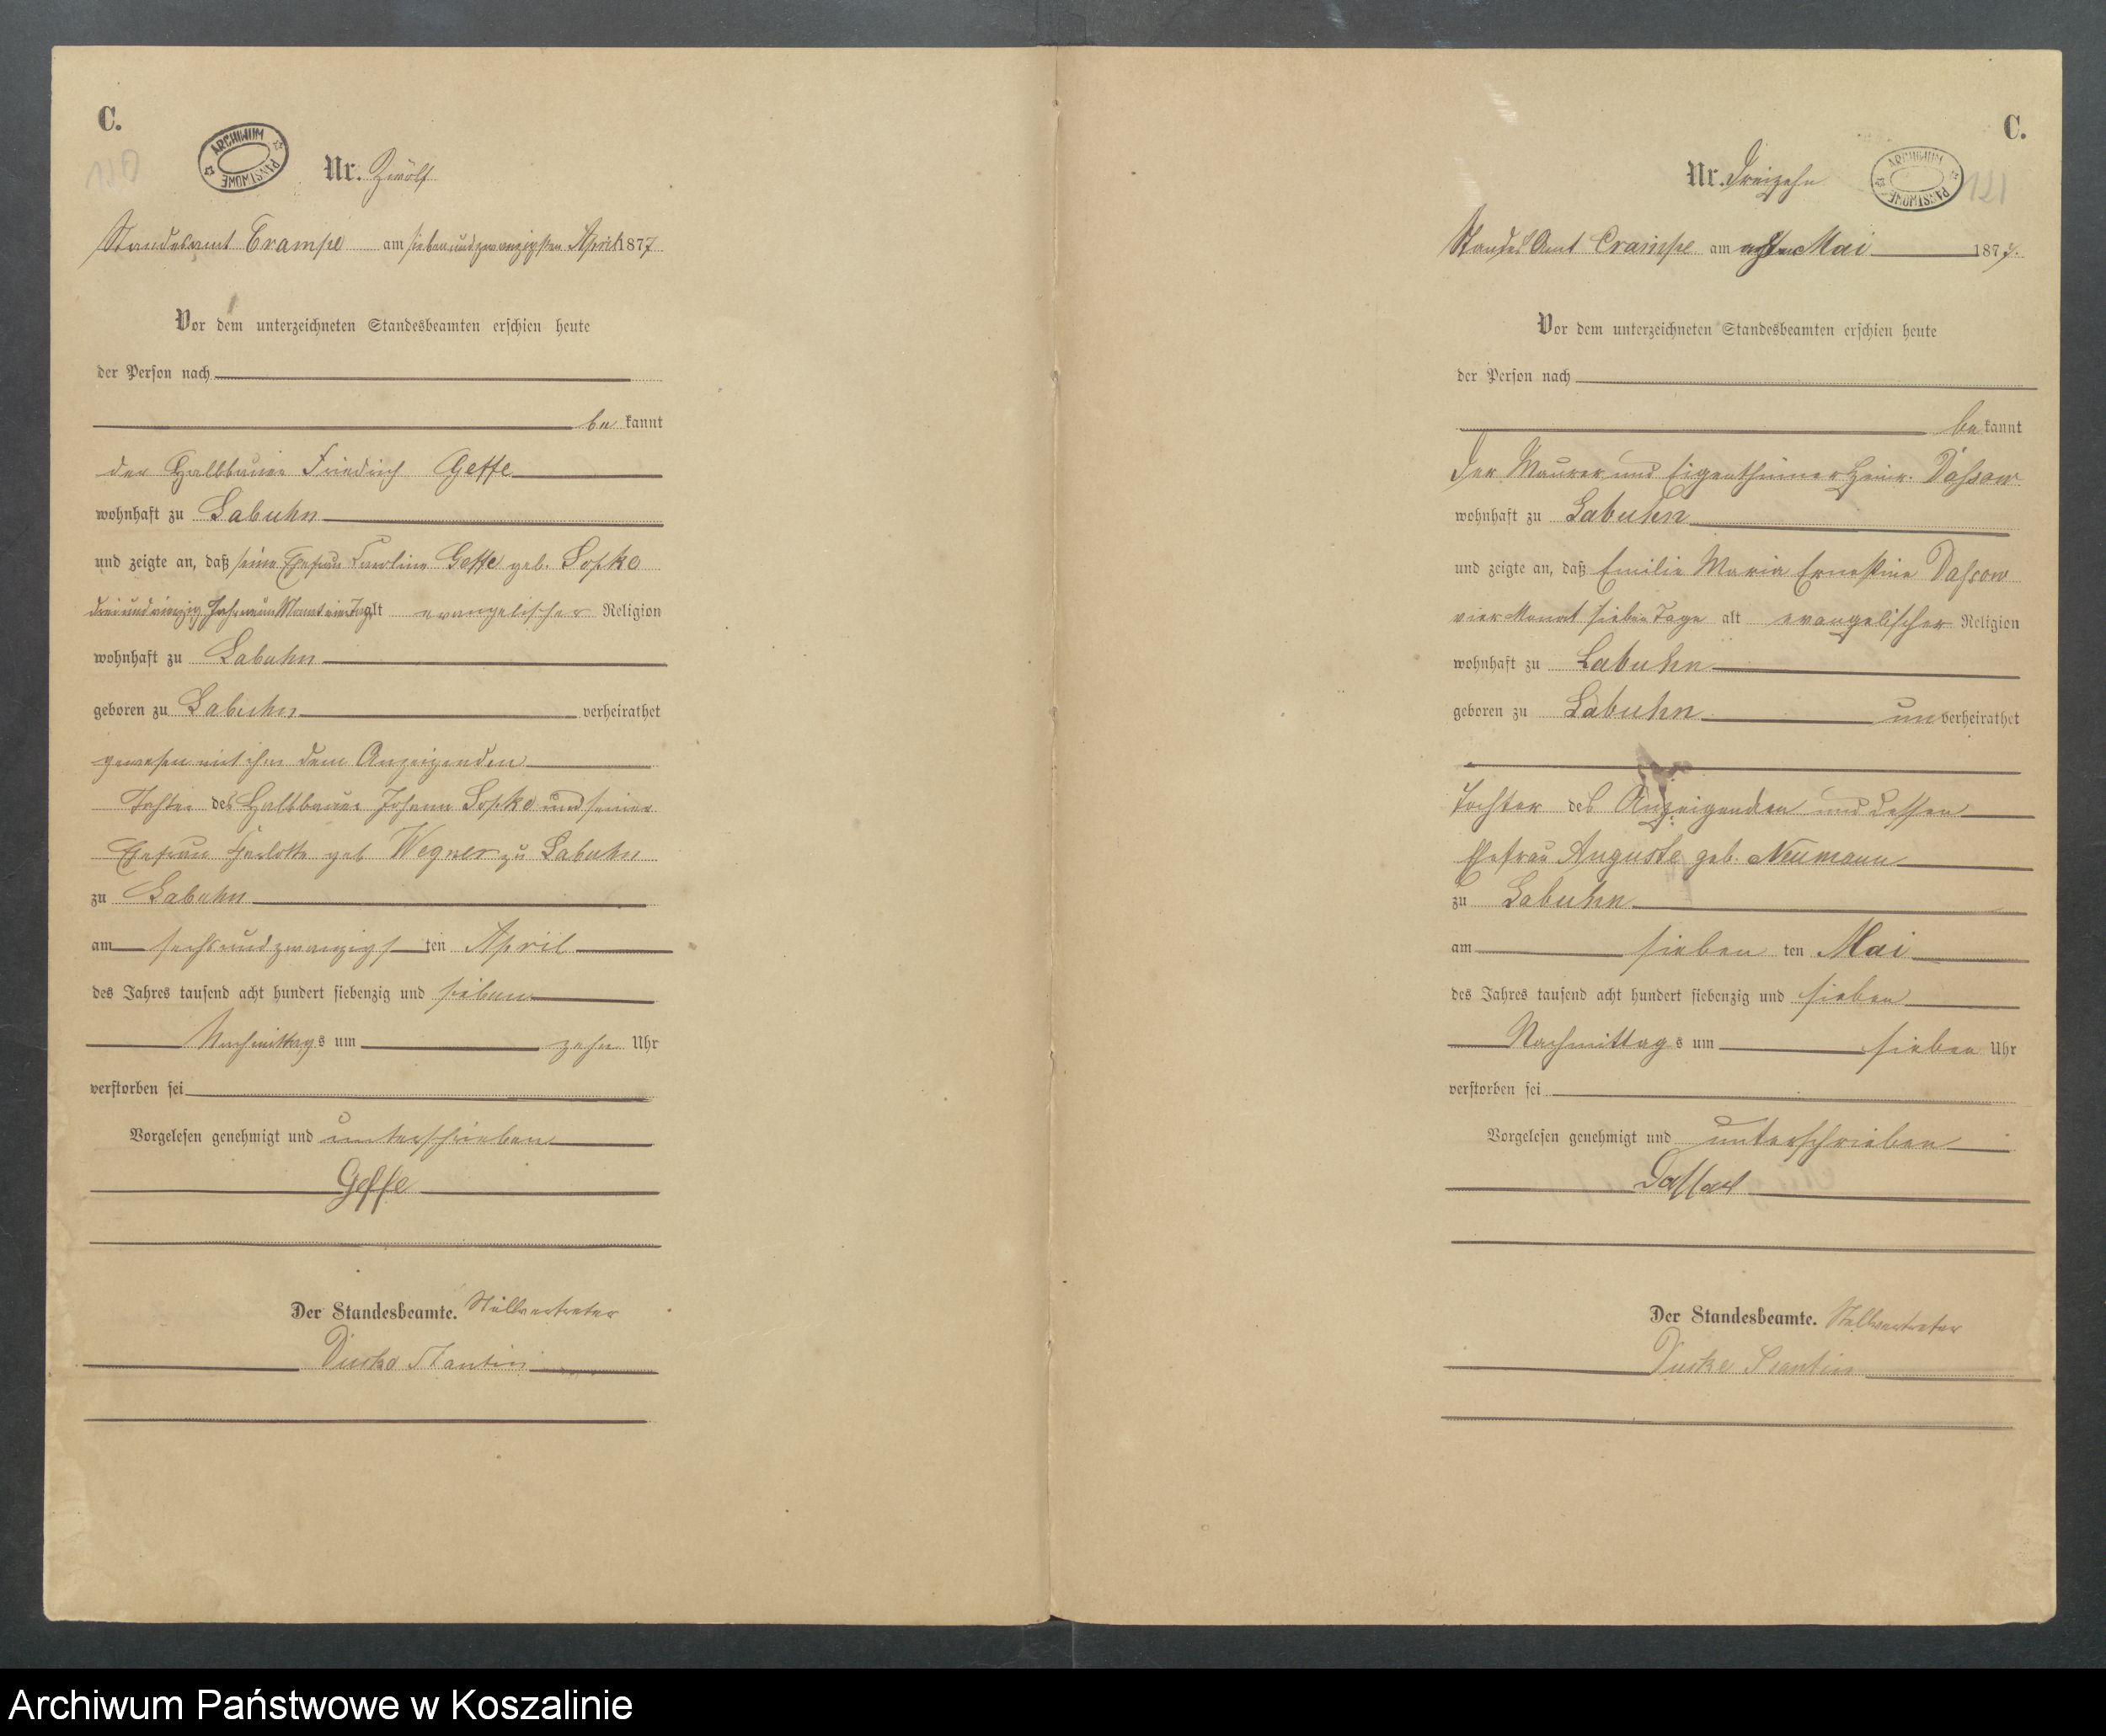 C.
ARCHIWUM PAŃSTWOWE
Nr. Zwölf
Standesamt Crampe am siebenundzwanzigsten April 1877
Vor dem unterzeichneten Standesbeamten erschien heute
der Person nach
be kannt
der Halbbauer Friedrich Geffe
wohnhaft zu Labuhn
und zeigte an, daß seine Ehefrau Caroline Geffe geb. Sopko
dreiundvierzig Jahr neun Monat ein Tag alt evangelischer Religion
wohnhaft zu Labuhn
geboren zu Labuhn verheirathet
gewesen mit ihm dem Anzeigenden
Tochter des Halbbauer Johann Sopko und seiner
Ehefrau geb Wegner zu Labuhn
zu Labuhn
am sechsundzwanzigs ten April
des Jahres tausend acht hundert siebenzig und sieben
Nachmittags um zehn Uhr
verstorben sei
Vorgelesen genehmigt und unterschrieben
Geffe
Der Standesbeamte. Stellvertreter
C.
Nr. Dreizehn
ARCHIWUM PAŃSTWOWE
121
Standes Amt Crampe am achten Mai 1877.
Vor dem unterzeichneten Standesbeamten erschien heute
der Person nach
be kannt
der Maurer und Eigenthümer Heinr. Dassow
wohnhaft zu Labuhn
und zeigte an, daß Emilie Maria Ernestine Dassow
vier Monat sieben Tage alt evangelischer Religion
wohnhaft zu Labuhn
geboren zu Labuhn un verheirathet
Tochter des Anzeigenden und dessen
Ehefrau Auguste geb. Neumann
zu Labuhn
am sieben ten Mai
des Jahres tausend acht hundert siebenzig und sieben
Nachmittags um sieben Uhr
verstorben sei
Vorgelesen genehmigt und unterschrieben
Der Standesbeamte. Stellvertreter
Archiwum Państwowe w Koszalinie